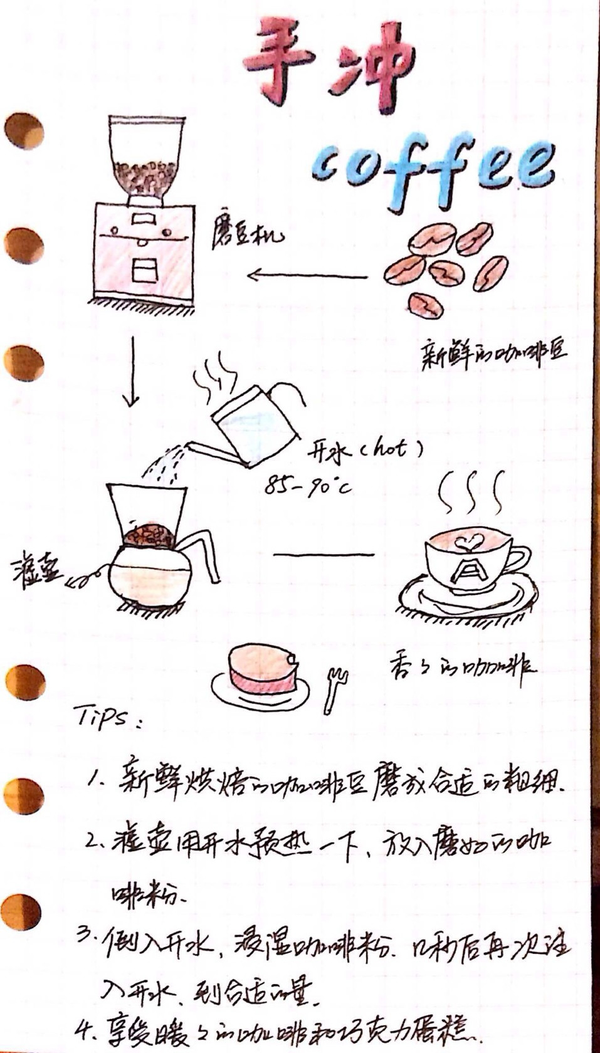 手冲
coffee
磨豆机
新鲜的咖啡豆
开水(hot)
85-90℃
滤壶
香々的咖啡
Tips:
1. 新鲜烘焙的咖啡豆磨成合适的粗细.
2. 滤壶用开水预热一下、放入磨好的咖
啡粉.
3. 倒入开水, 浸湿咖啡粉. 几秒后再次注
入开水、到合适的量.
4. 享受暖々的咖啡和巧克力蛋糕.